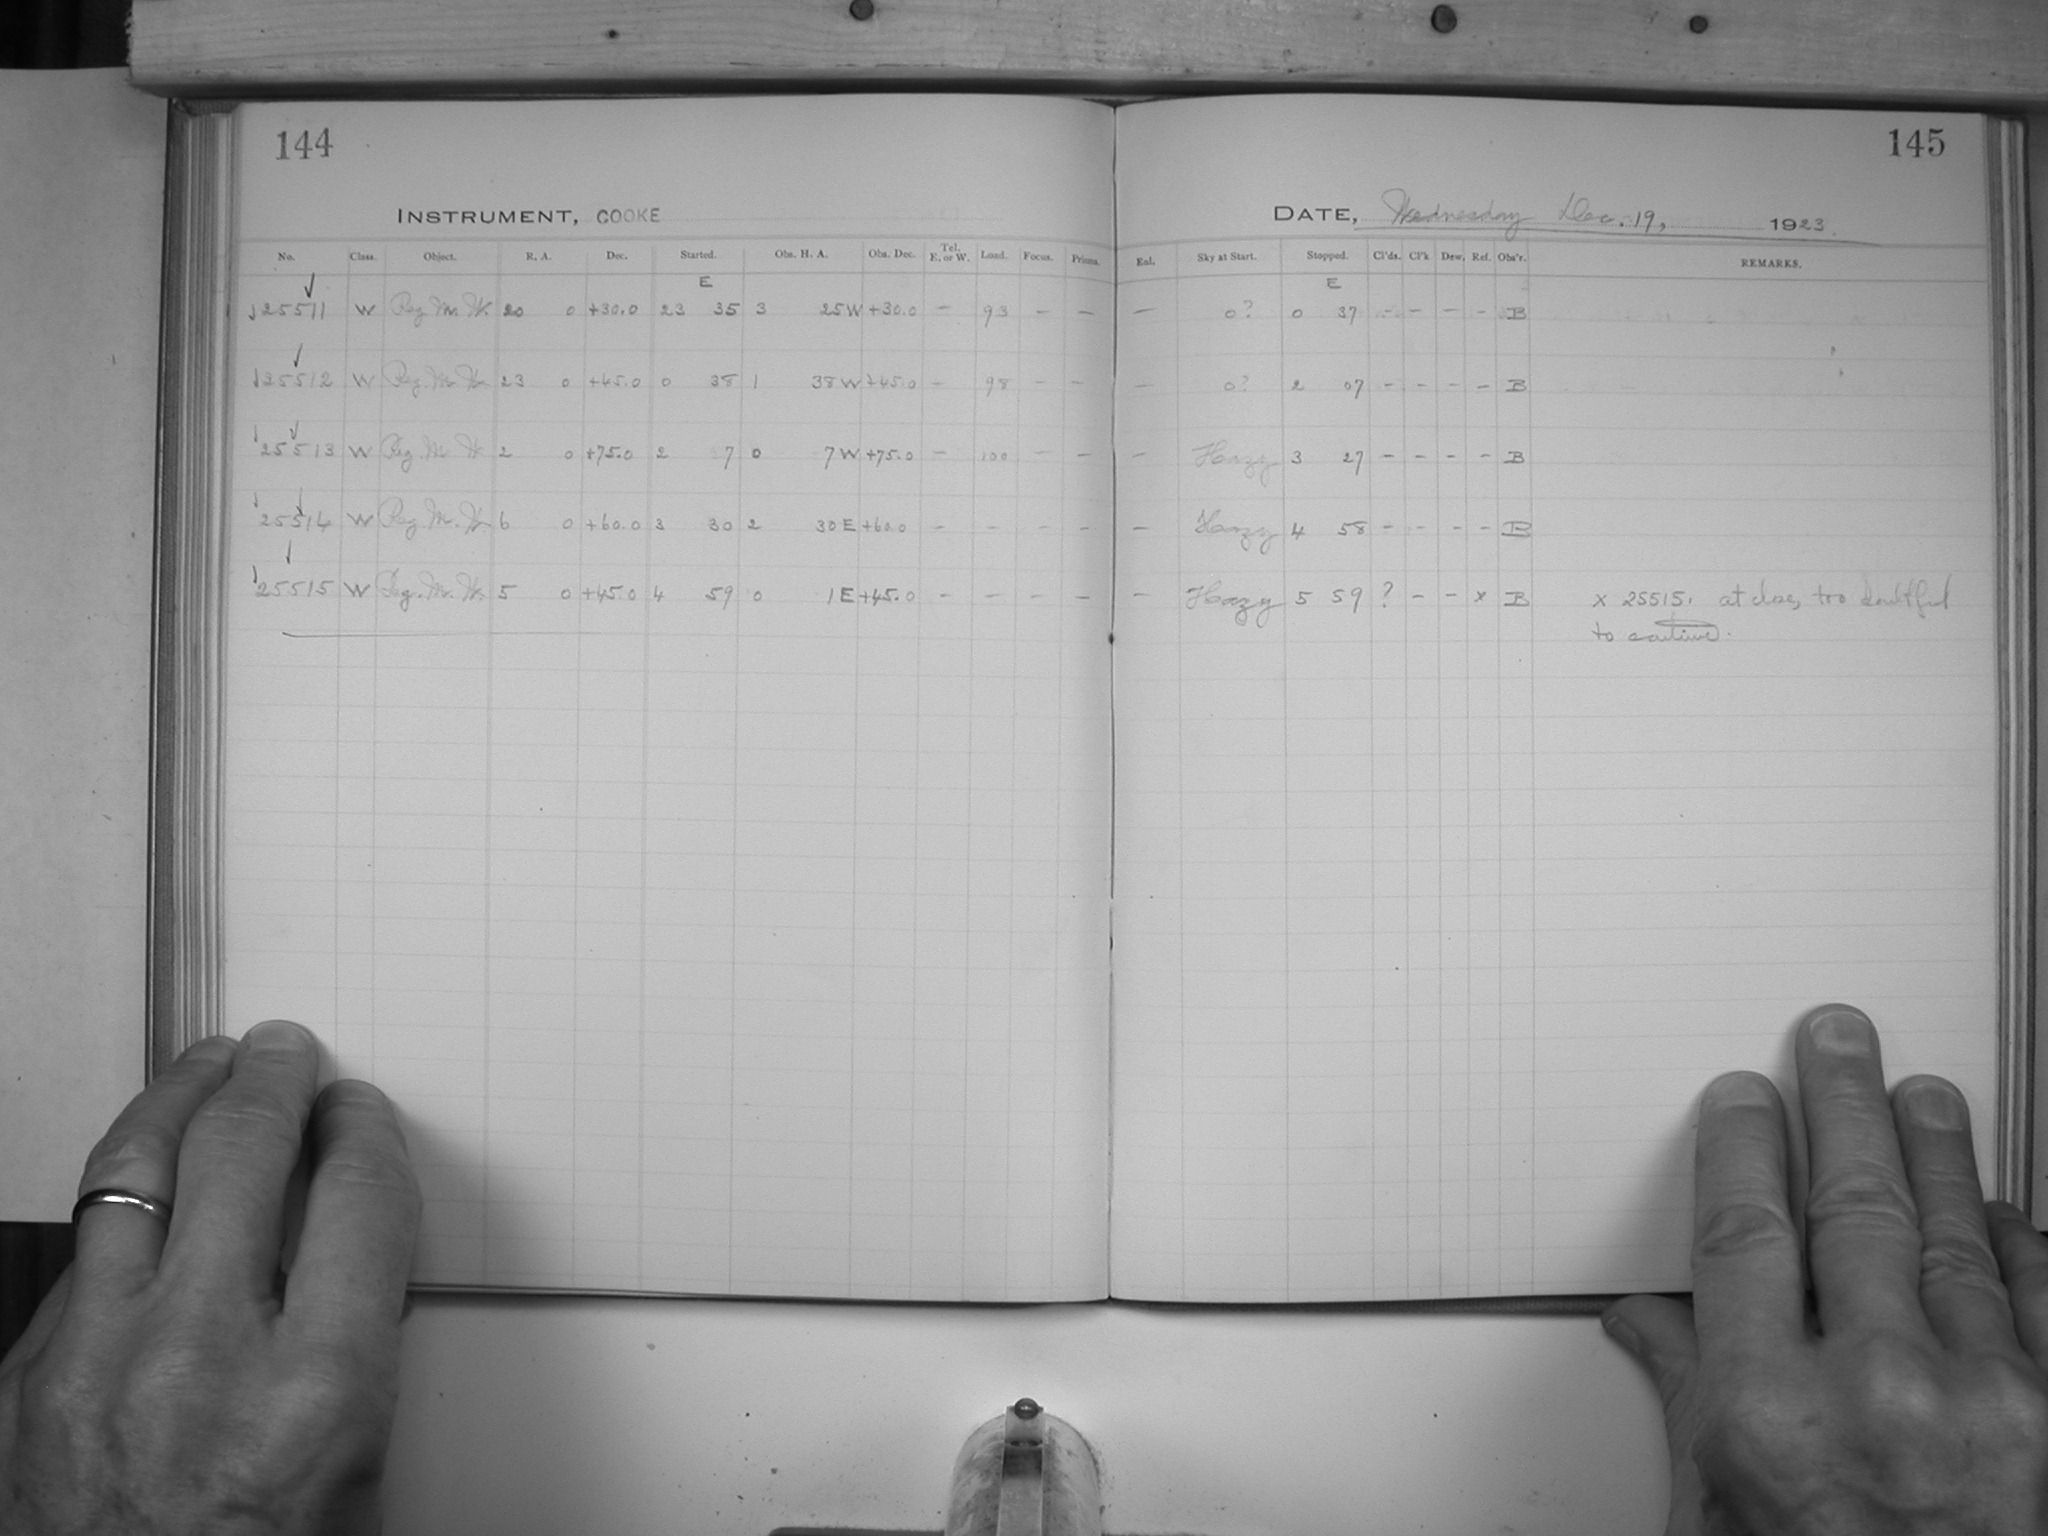 144
145
INSTRUMENT, COOKE
DATE, Wednesday Dec. 19, 1923.
No. Class. Object. R. A. Dec. Started. Obs. H. A. Obs. Dec. Tel. E. or W. Load. Focus. Prisms. Enl. Sky at Start. Stopped. Cl'ds. Cl'k Dew. Ref. Obs'r. REMARKS.
E E
25511 W Reg. M. W. 20 0 +30.0 23 35 3 25 W +30.0 – 93 – – – 0? 0 37 – – – – B
25512 W Reg. M. W. 23 0 +45.0 0 38 1 38 W +45.0 – 98 – – – 0? 2 07 – – – – B
25513 W Reg. M. W. 2 0 +75.0 2 7 0 7 W +75.0 – 100 – – – Hazy 3 27 – – – – B
25514 W Reg. M. W. 6 0 +60.0 3 30 2 30 E +60.0 – – – – – Hazy 4 58 – – – – B
25515 W Reg. M. W. 5 0 +45.0 4 59 0 1 E +45.0 – – – – – Hazy 5 59 ? – – x B x 25515. at close, too doubtful
to continue.